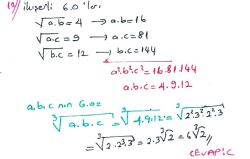 19) ikişerli G.O'ları
√a.b = 4 → a.b=16
√a.c = 9 → a.c=81
√b.c = 12 → b.c=144
a²b²c² = 16.81.144
a.b.c = 4.9.12
a,b,c nin G.O=
∛a.b.c = ∛4.9.12 = ∛2².3².2².3
= ∛2.2³.3³ = 2.3∛2 = 6∛2 //
CEVAP:C